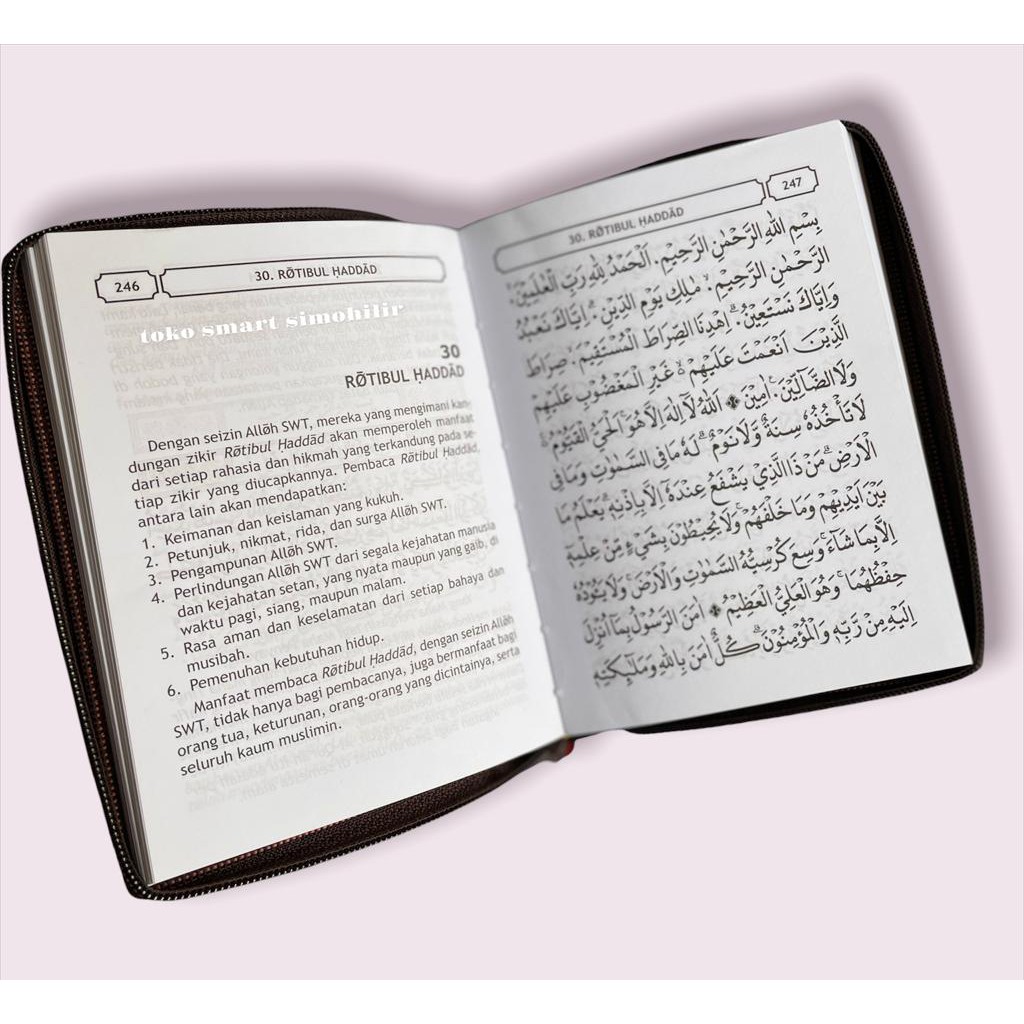 246
30. RŌTIBUL ḤADDĀD
toko smart simohilir
30
RŌTIBUL ḤADDĀD
Dengan seizin Allōh SWT, mereka yang mengimani kan-
dungan zikir Rōtibul Ḥaddād akan memperoleh manfaat
dari setiap rahasia dan hikmah yang terkandung pada se-
tiap zikir yang diucapkannya. Pembaca Rōtibul Ḥaddād,
antara lain akan mendapatkan:
1. Keimanan dan keislaman yang kukuh.
2. Petunjuk, nikmat, rida, dan surga Allōh SWT.
3. Pengampunan Allōh SWT.
4. Perlindungan Allōh SWT dari segala kejahatan manusia
dan kejahatan setan, yang nyata maupun yang gaib, di
waktu pagi, siang, maupun malam.
5. Rasa aman dan keselamatan dari setiap bahaya dan
musibah.
6. Pemenuhan kebutuhan hidup.
Manfaat membaca Rōtibul Ḥaddād, dengan seizin Allōh
SWT, tidak hanya bagi pembacanya, juga bermanfaat bagi
orang tua, keturunan, orang-orang yang dicintainya, serta
seluruh kaum muslimin.
30. RŌTIBUL ḤADDĀD
247
بِسْمِ اللهِ الرَّحْمٰنِ الرَّحِيْمِ. اَلْحَمْدُ لِلّٰهِ رَبِّ الْعٰلَمِيْنَۙ
الرَّحْمٰنِ الرَّحِيْمِۙ مٰلِكِ يَوْمِ الدِّيْنِۗ اِيَّاكَ نَعْبُدُ
وَاِيَّاكَ نَسْتَعِيْنُۗ اِهْدِنَا الصِّرَاطَ الْمُسْتَقِيْمَۙ صِرَاطَ
الَّذِيْنَ اَنْعَمْتَ عَلَيْهِمْ ەۙ غَيْرِ الْمَغْضُوْبِ عَلَيْهِمْ
وَلَا الضَّاۤلِّيْنَ. اٰمِيْنَ ۞ اَللهُ لَآ اِلٰهَ اِلَّا هُوَۚ اَلْحَيُّ الْقَيُّوْمُ ەۚ
لَا تَأْخُذُهٗ سِنَةٌ وَّلَا نَوْمٌۗ لَهٗ مَا فِى السَّمٰوٰتِ وَمَا فِى
الْاَرْضِۗ مَنْ ذَا الَّذِيْ يَشْفَعُ عِنْدَهٗٓ اِلَّا بِاِذْنِهٖۗ يَعْلَمُ مَا
بَيْنَ اَيْدِيْهِمْ وَمَا خَلْفَهُمْۚ وَلَا يُحِيْطُوْنَ بِشَيْءٍ مِّنْ عِلْمِهٖٓ
اِلَّا بِمَا شَاۤءَۚ وَسِعَ كُرْسِيُّهُ السَّمٰوٰتِ وَالْاَرْضَۚ وَلَا يَـُٔوْدُهٗ
حِفْظُهُمَاۚ وَهُوَ الْعَلِيُّ الْعَظِيْمُ ۞ اٰمَنَ الرَّسُوْلُ بِمَآ اُنْزِلَ
اِلَيْهِ مِنْ رَّبِّهٖ وَالْمُؤْمِنُوْنَۗ كُلٌّ اٰمَنَ بِاللهِ وَمَلٰۤىِٕكَتِهٖ